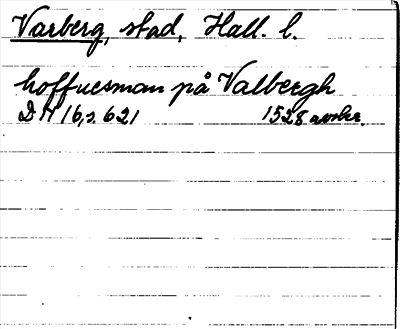 Varberg, stad, Hall. l.
hoffuesman på Valbergh
DN 16, s. 621 1528 avskr.